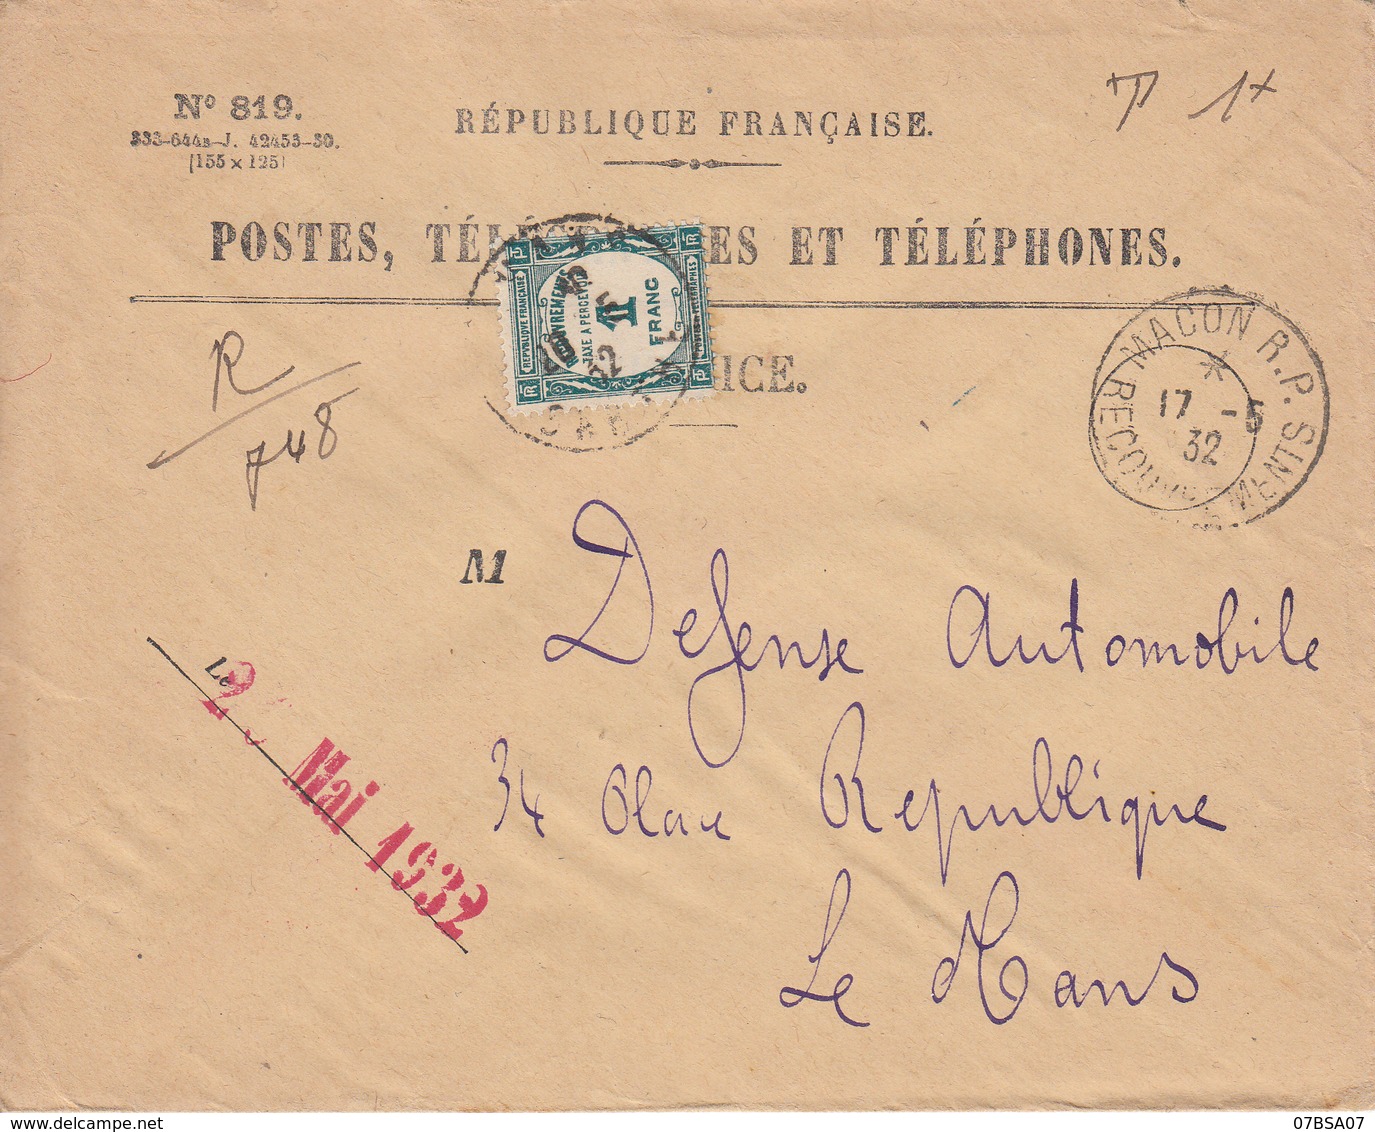 N° 819.
333-644B-J. 42453-30.
(155 x 125)
RÉPUBLIQUE FRANÇAISE.
T 1+
POSTES, ET TÉLÉPHONES.
REPUBLIQUE FRANÇAISE
RECOUVREMENTS
TAXE A PERCEVOIR
1
FRANC
32
R
748
MACON R.P.
RECOUVREMENTS
17 -5
32
M Defense Automobile
34 Place Republique
Le Mans
Mai 1932
delcampe.net
07BSA07